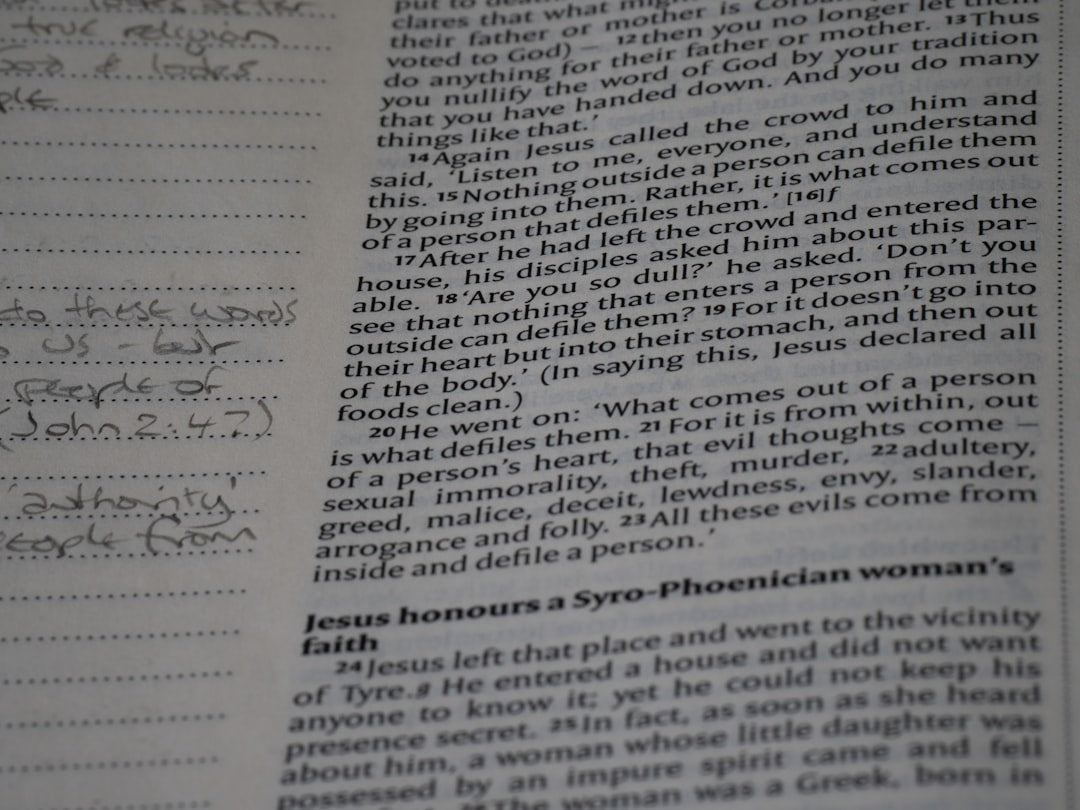 looks after
true religion
God & looks
to these words
us - but
people of
(John 2:47)
'authority'
people from
put to death
clares that what might
their father or mother is Corban
voted to God) – 12then you no longer let them
do anything for their father or mother. 13Thus
you nullify the word of God by your tradition
that you have handed down. And you do many
things like that.'
14Again Jesus called the crowd to him and
said, 'Listen to me, everyone, and understand
this. 15Nothing outside a person can defile them
by going into them. Rather, it is what comes out
of a person that defiles them.' [16]f
17After he had left the crowd and entered the
house, his disciples asked him about this par-
able. 18'Are you so dull?' he asked. 'Don't you
see that nothing that enters a person from the
outside can defile them? 19For it doesn't go into
their heart but into their stomach, and then out
of the body.' (In saying this, Jesus declared all
foods clean.)
20He went on: 'What comes out of a person
is what defiles them. 21For it is from within, out
of a person's heart, that evil thoughts come –
sexual immorality, theft, murder, 22adultery,
greed, malice, deceit, lewdness, envy, slander,
arrogance and folly. 23All these evils come from
inside and defile a person.'
Jesus honours a Syro-Phoenician woman's
faith
24Jesus left that place and went to the vicinity
of Tyre.g He entered a house and did not want
anyone to know it; yet he could not keep his
presence secret. 25In fact, as soon as she heard
about him, a woman whose little daughter was
possessed by an impure spirit came and fell
26The woman was a Greek, born in